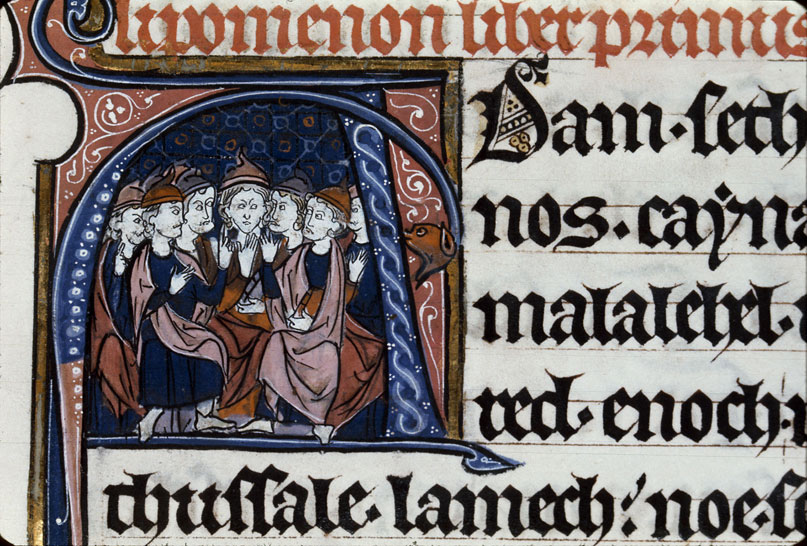 lipomenon liber primus
Adam · seth
nos · cayna
malalehel ·
red · enoch ·
thussale · lamech · noe · s